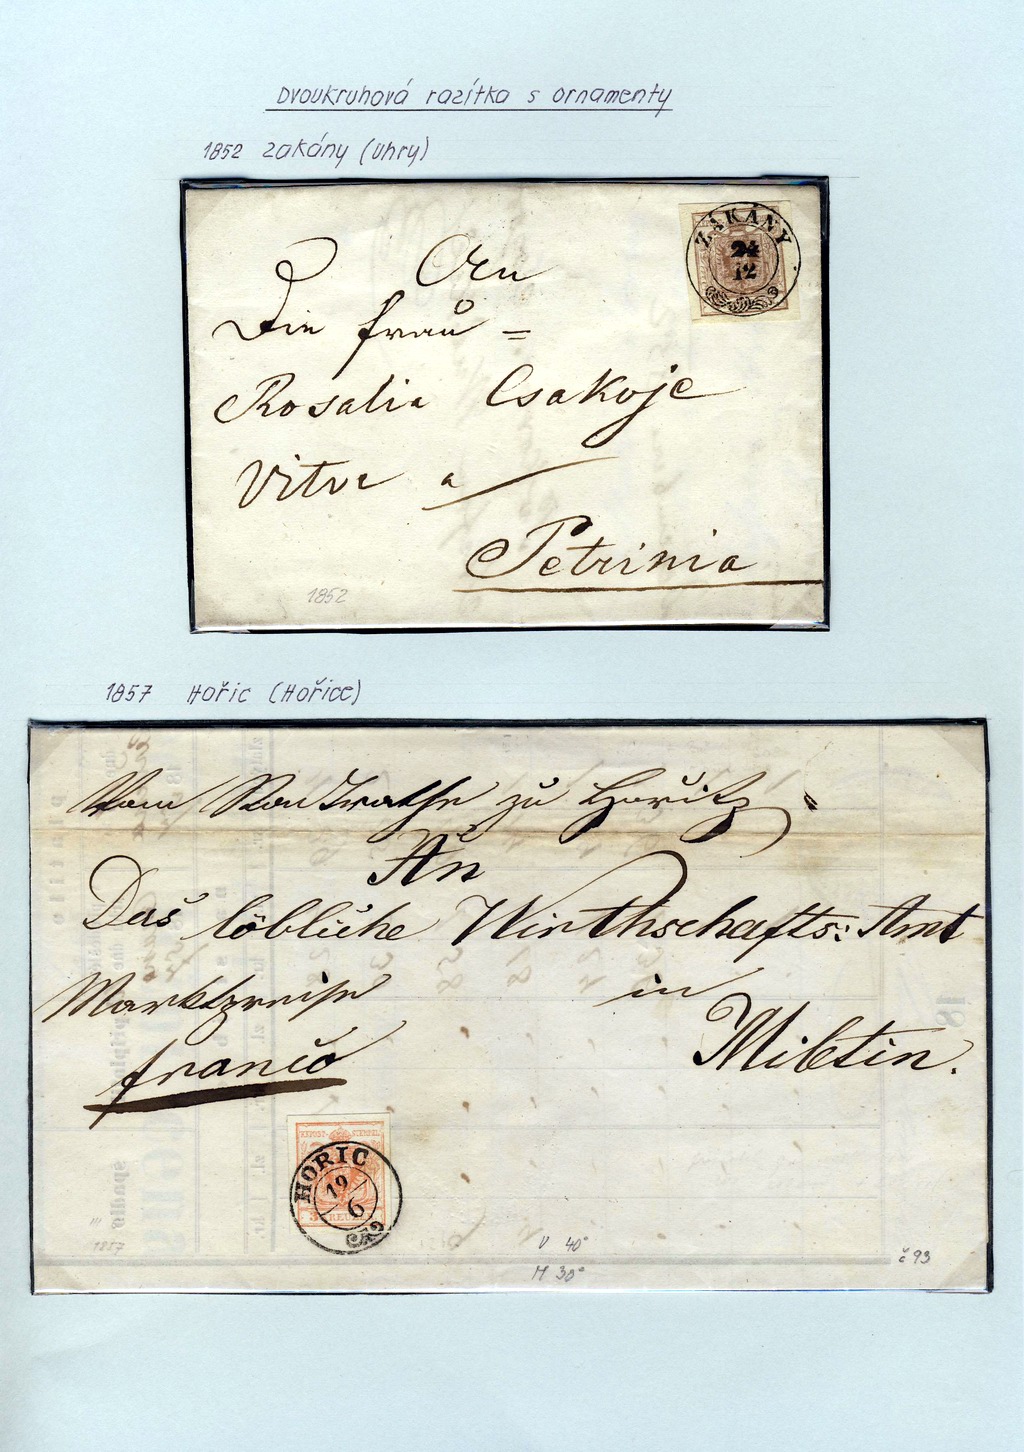 Dvoukruhová razítka s ornamenty
1852 Zakány (Uhry)
ZÁKÁNY
24
12
An
Die Frau =
Rosalia Csakoje
Vitve a
Petrinia
1852
1857 Hořic (Hořice)
Vom zu Horitz
An
Das löbliche Wirthschafts: Amt
Marktpreise in
Miletin.
franco
KK POST-STEMPEL
HORIC
19
6
3 KREUZER
1857
V 40°
M 30°
č 93